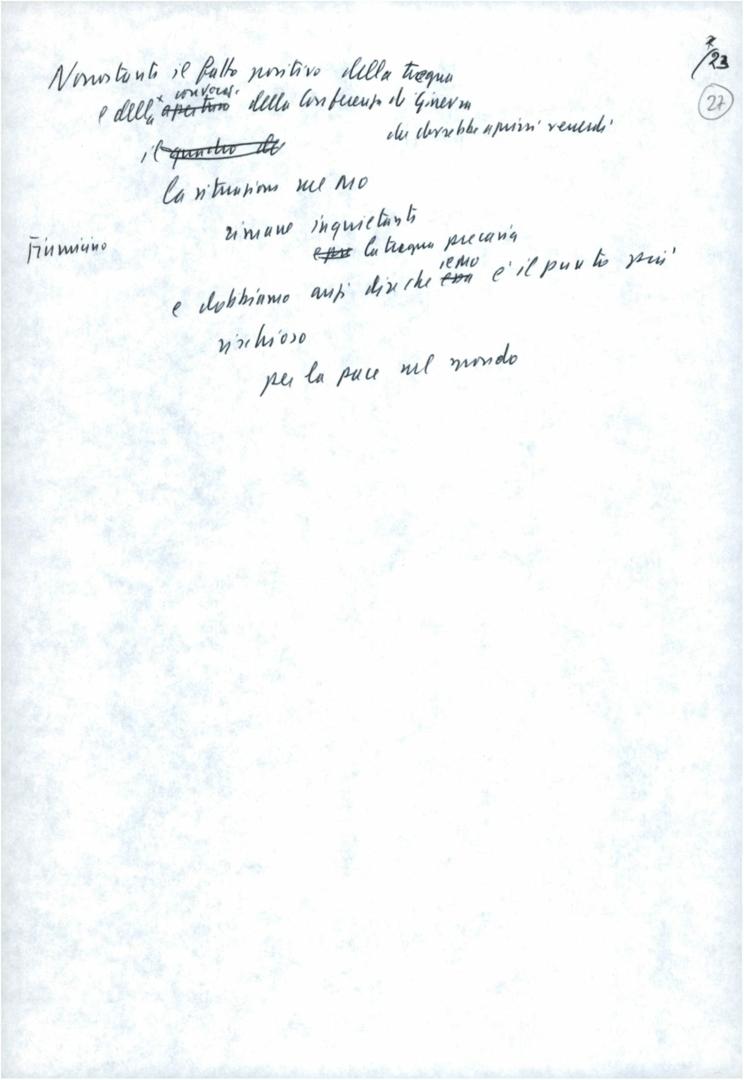 /23
27
Nonostante il fatto positivo della tregua
e della apertura convocaz. della Conferenza di Ginevra
che dovrebbe aprirsi venerdì
il quadro di
la situazione nel MO
rimane inquietante
Fiumicino
e la tregua precaria
e dobbiamo anzi dire che il MO è il punto più
rischioso
per la pace nel mondo